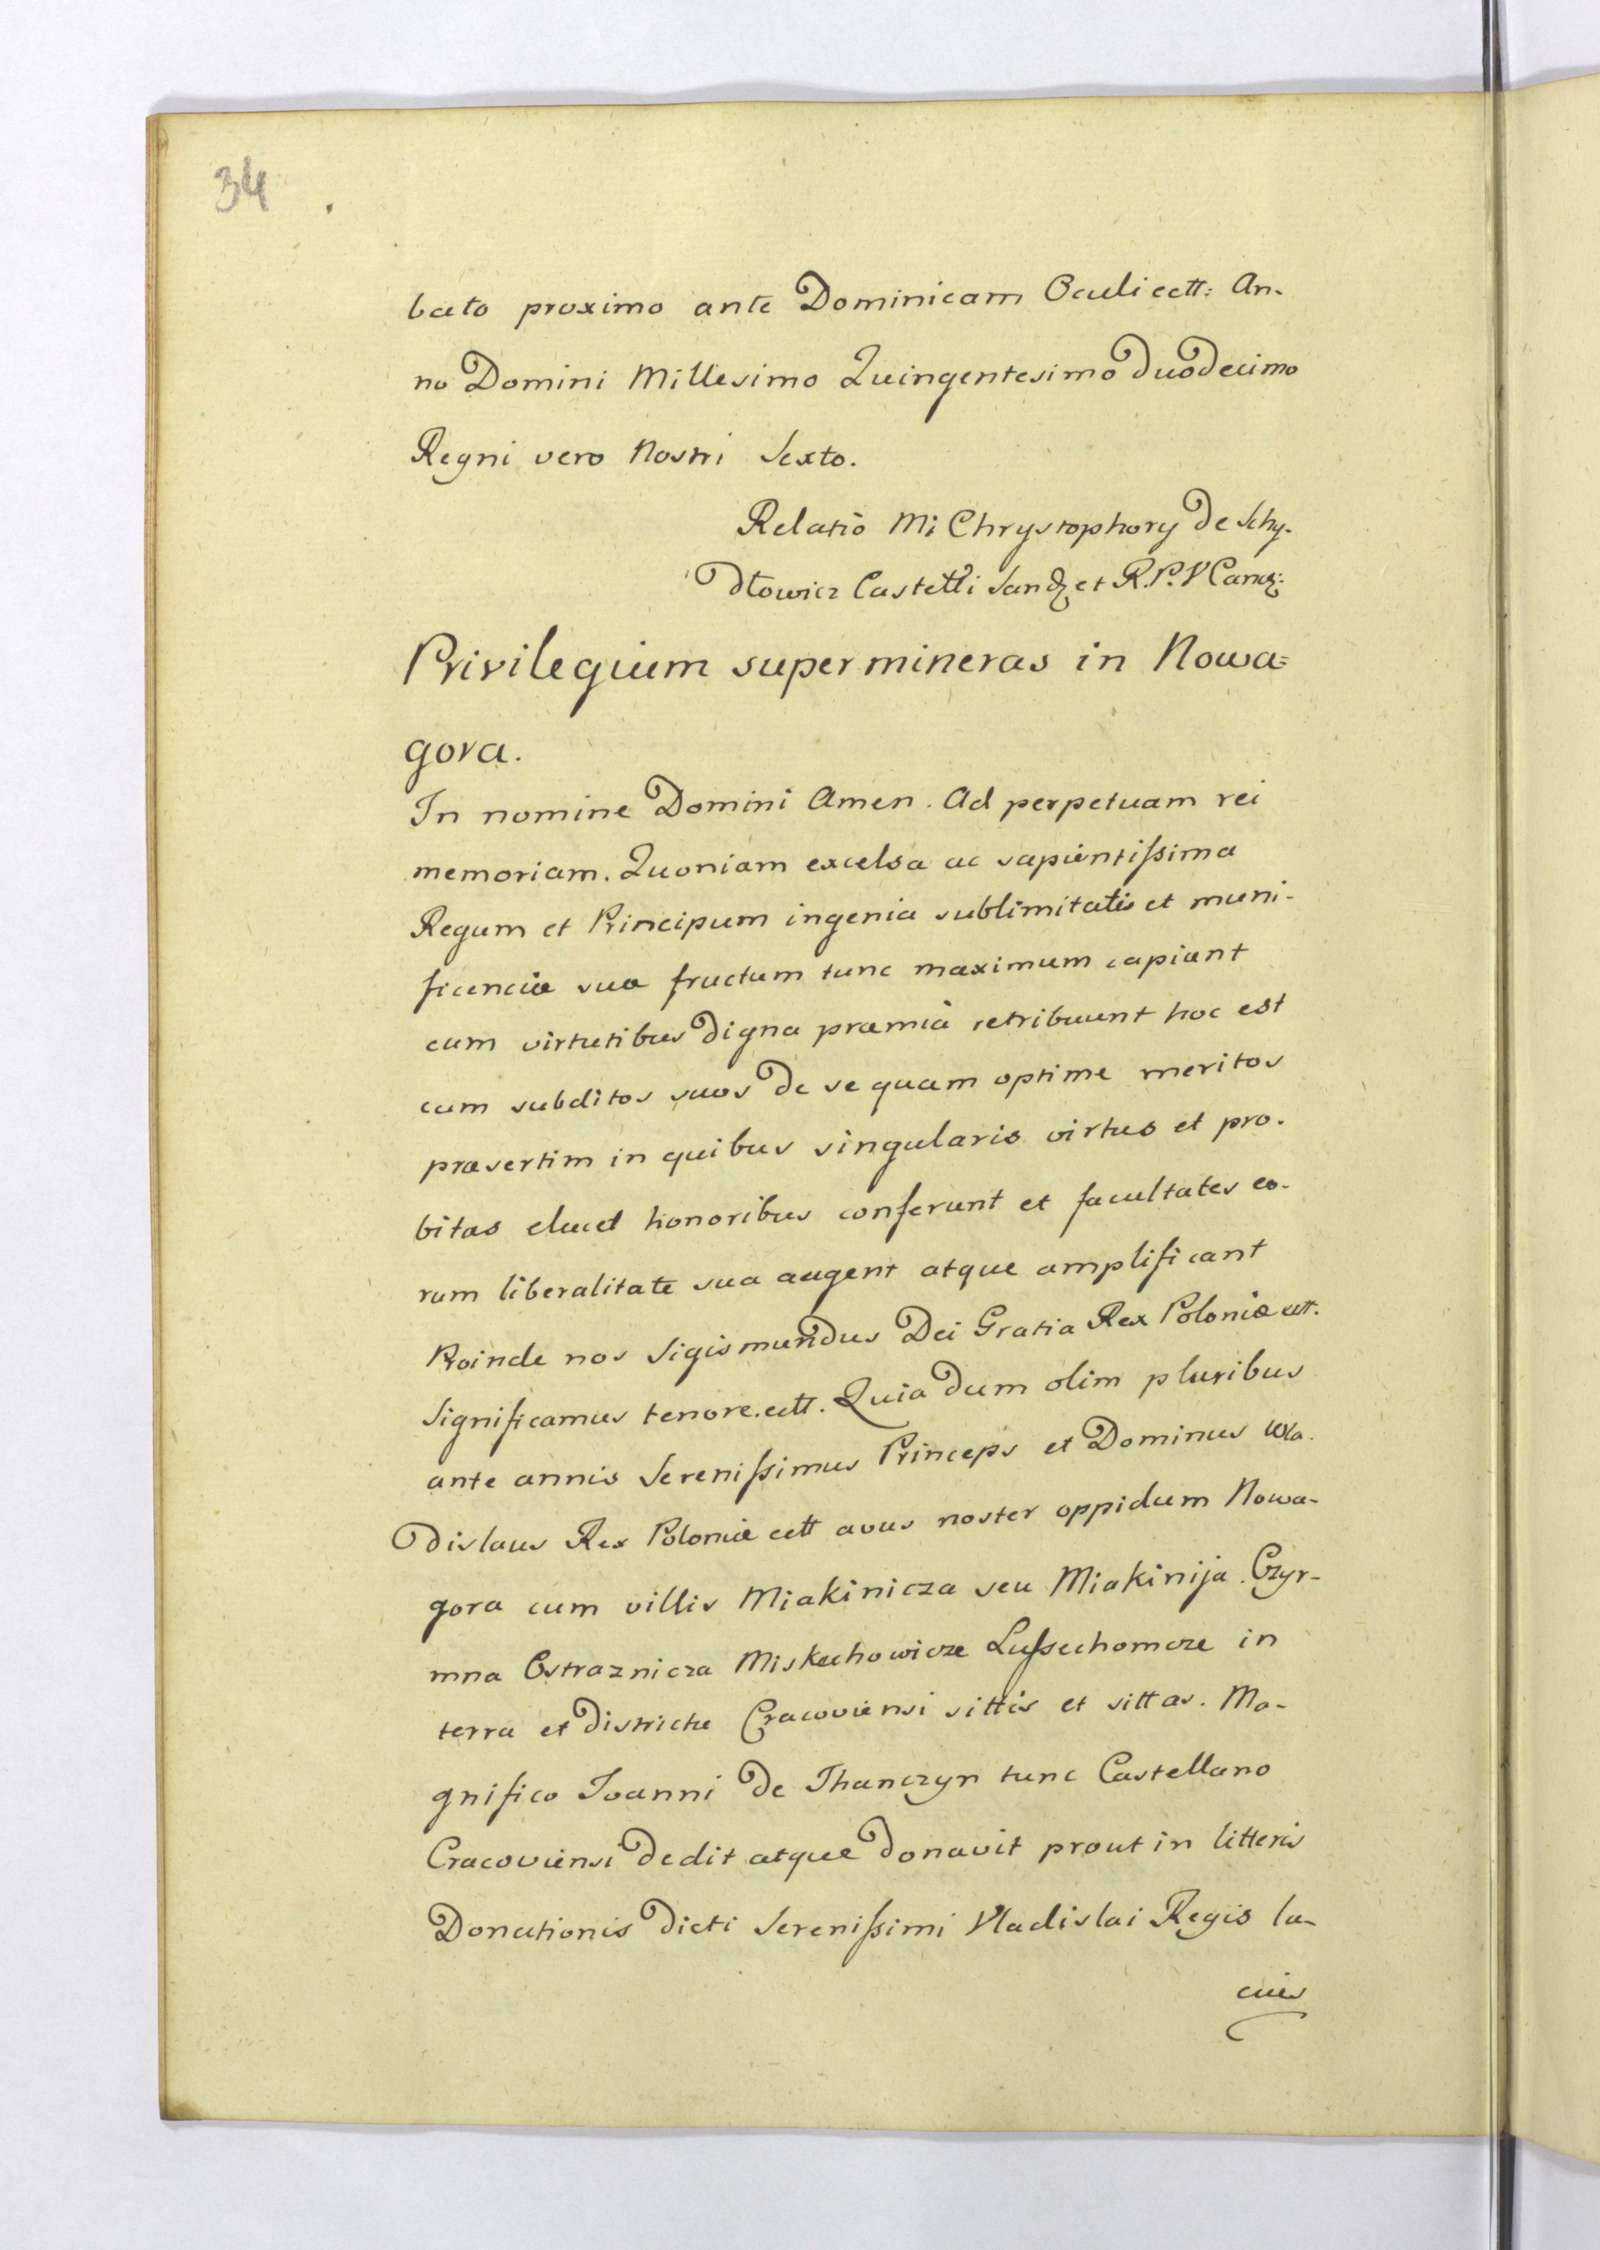 34
bato proximo ante Dominicam Oculi cett: An-
no Domini Millesimo Quingentesimo duodecimo
Regni vero Nostri Sexto.
Relatio Mi Chrystophory de Schy-
dłowicz Castełłi Sandz et R.P.V Canc:
Privilegium super mineras in Nowa=
gora.
In nomine Domini Amen. Ad perpetuam rei
memoriam. Quoniam excelsa ac sapientißima
Regum et Principum ingenia sublimitatis et muni-
ficenciæ suæ fructum tunc maximum capiunt
cum virtutibus digna præmia retribuunt hoc est
cum subditos suos de se quam optime meritos
præsertim in quibus singularis virtus et pro-
bitas elucet honoribus conferunt et facultates eo-
rum liberalitate sua augent atque amplificant
Proinde nos Sigismundus Dei Gratia Rex Poloniæ cett.
Significamus tenore. cett. Quia dum olim pluribus
ante annis Serenißimus Princeps et Dominus Wla-
dislaus Rex Poloniæ cett avus noster oppidum Nowa-
gora cum villis Miakinicza seu Miakinija. Czyr-
mna Ostraznicza Miskechowicze Lußechomcze in
terra et districtu Cracoviensi sittis et sittas. Ma-
gnifico Joanni de Thanczyn tunc Castellano
Cracoviensi dedit atque donavit prout in litteris
Donationis dicti Serenißimi Vladislai Regis la-
cius